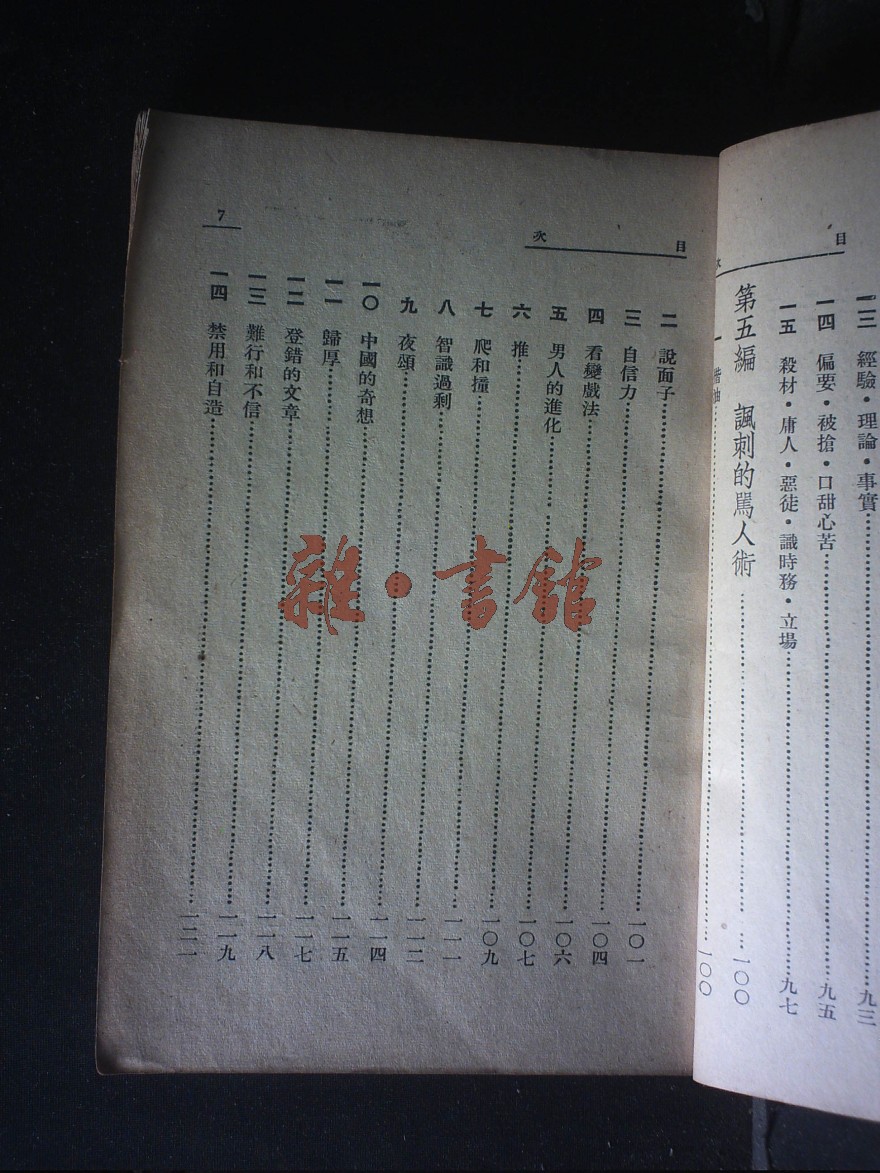 目 次
一三 經驗・理論・事實……九三
一四 偏要・被搶・口甜心苦……九五
一五 殺材・庸人・惡徒・識時務・立場……九七
第五編 諷刺的罵人術……一〇〇
一 油……一〇〇
目 次
7
二 說面子……一〇一
三 自信力……一〇四
四 看變戲法……一〇六
五 男人的進化……一〇七
六 推……一〇九
七 爬和撞……一一一
八 智識過剩……一一二
九 夜頌……一一四
一〇 中國的奇想……一一五
一一 歸厚……一一七
一二 登錯的文章……一一八
一三 難行和不信……一一九
一四 禁用和自造……一二一
雜・書館